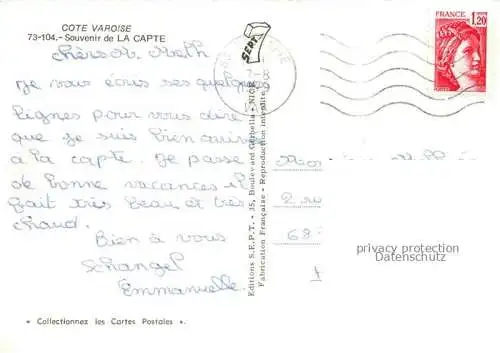 COTE VAROISE
73-104.- Souvenir de LA CAPTE
chers Mr. Meth
Je vous écris ses quelques
lignes pour vous dire
que je suis bien arrivé
a la capte. Je passe
de bonne vacances il
fait très beau et très
chaud.
Bien à vous
Schangel
Emmanuelle.
« Collectionnez les Cartes Postales ».
SEPT
Editions S.E.P.T. - 35, Boulevard Gorbella - NICE
Fabrication Française - Reproduction interdite
FRANCE
1,20
2 ru
68
privacy protection
Datenschutz